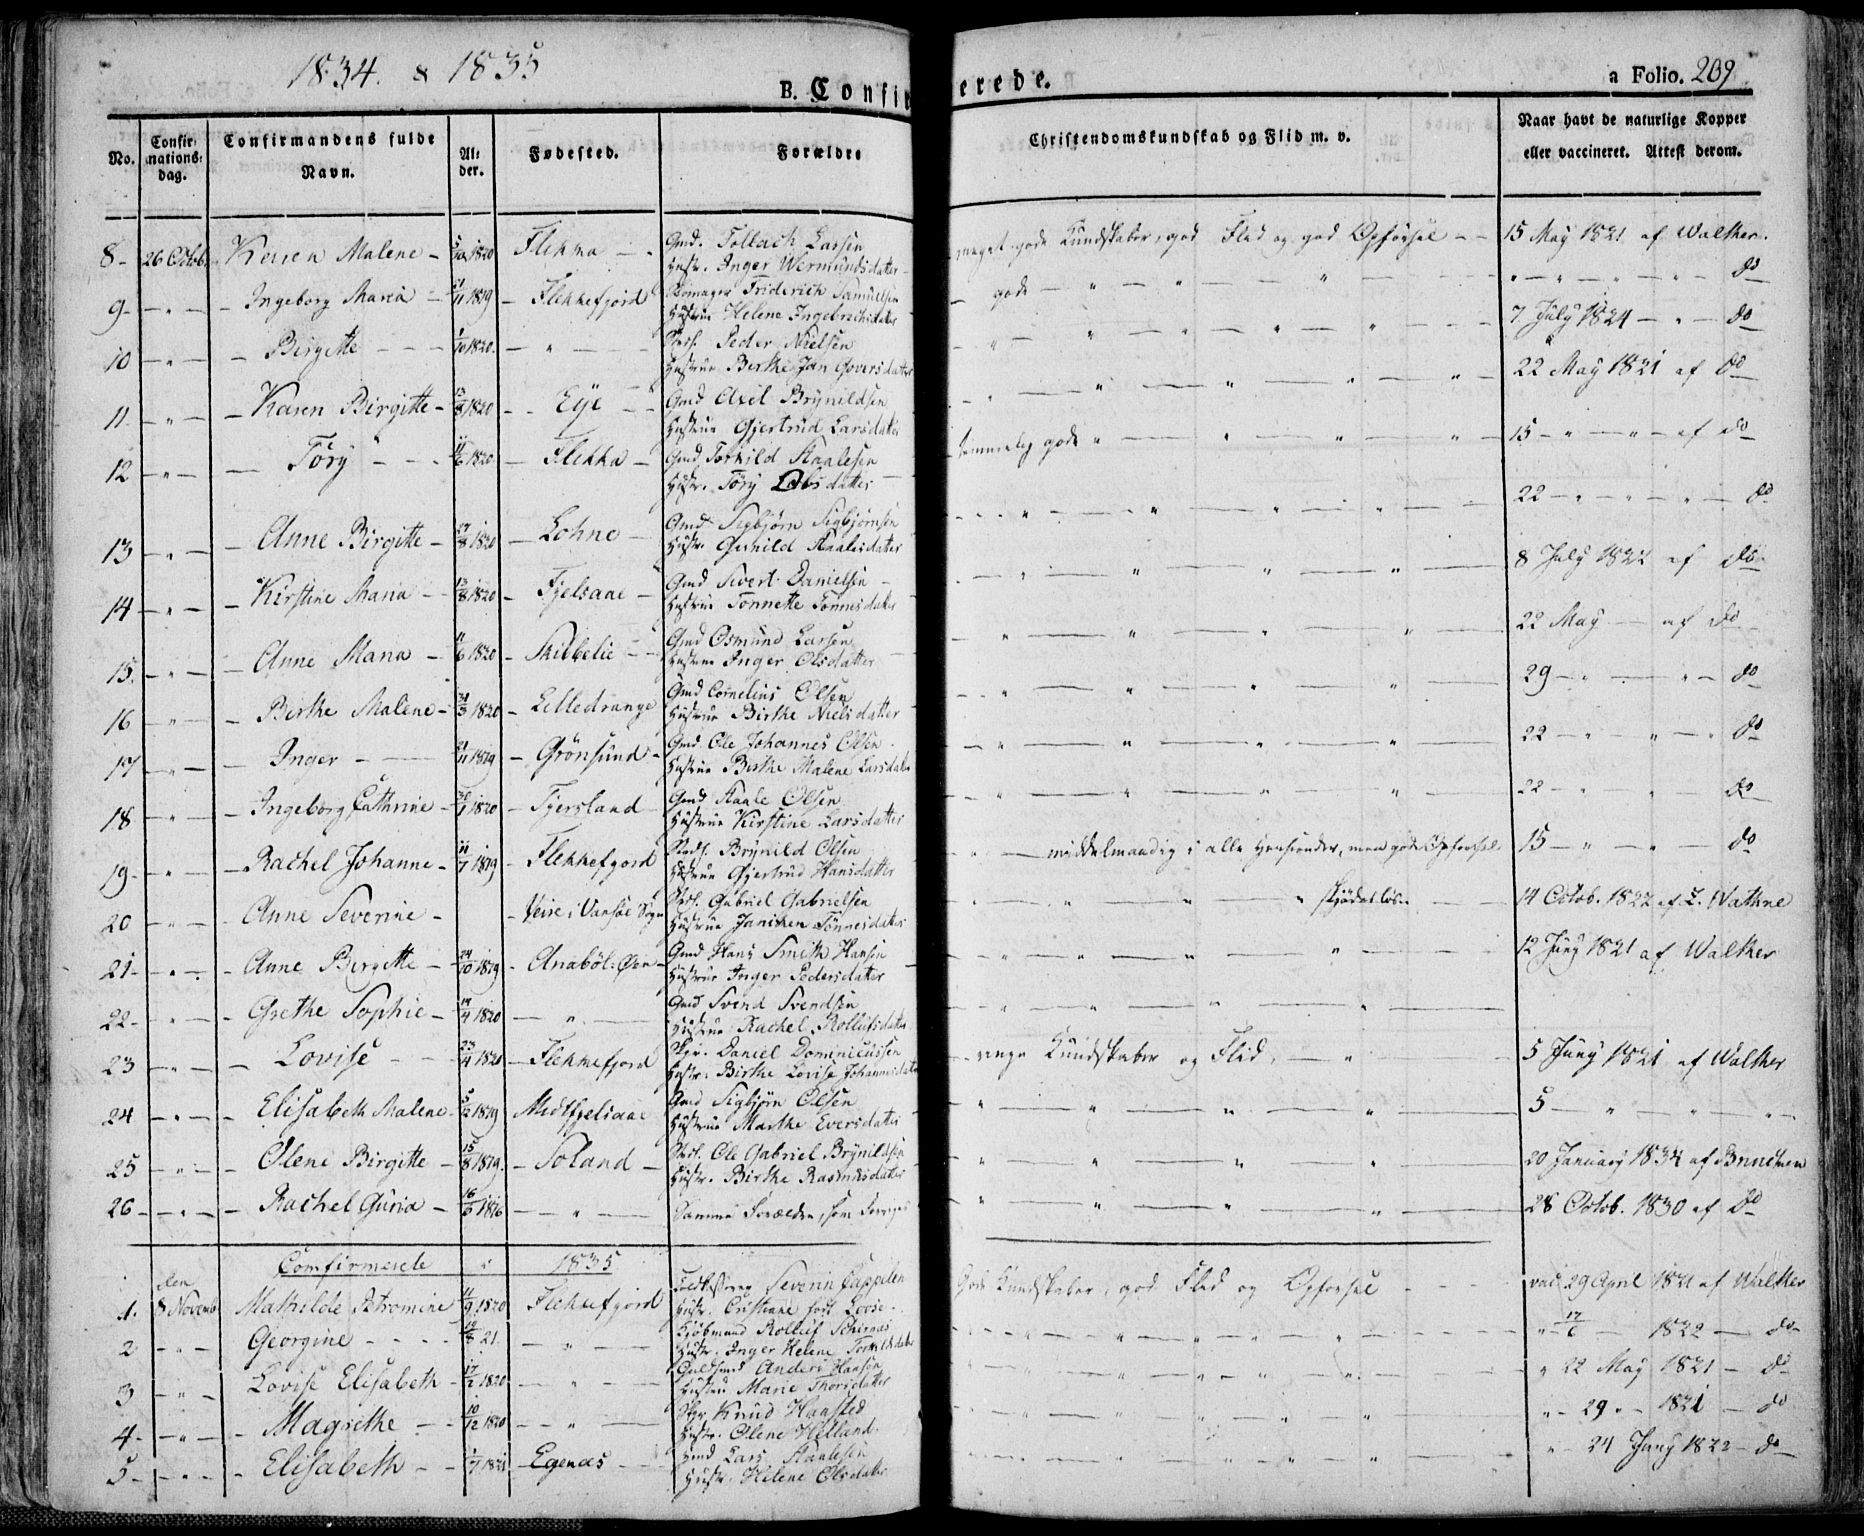 1834. & 1835
B. Confirerede.
a Folio. 209
No. Confirmations: dag. Confirmandens fulde Navn. Alder. Fødested. Forældre Christendomskundskab og Flid m. v. Naar havt de naturlige Kopper eller vaccineret. Attest derom.
8 - 26 Octob. Karen Malene - 5/10 1820 Flekka - Gmd. Tollach Larsen
Hustr. Inger Wermundsdatter - meget gode Kundskaber, god Flid og god Opførsel - - 15 May 1821 af Walker.
9 - " - Ingeborg Maria - 21/11 1819 - Flekkefjord Skomager Friderich Samuelsen
Hustrue Helene Ingebrechtsdatter - gode - " - " - " - do
10 - " - Birgitte - - - /10 1820. - " - Peder Nielsen
Hustrue Berthe Jan Goversdatter - " - " - " - 7 July 1824 - " - do
11. - " - Karen Birgitte - 13/8 1820 - - Eye - - Gmd Axel Brynildsen
Hustrue Gjertrud Larsdatter - " - " - " - 22 May 1821 af do
12 - " - Töry - - - 11/6 1820 - Flekka - Gmd Torkild Staalesen
Hustr. Töry Olsdatter temmelig gode " - " - " - 15 - " - " - af do
13 - " - Anne Birgitte - 17/8 1820 - Lohne - Gmd Sigbjørn Sigbjørnsen
Hustr. Gunild Staalesdatter - " - " - " - 22 - " - " - do
14 - " - Kirstine Maria - 13/8 1820 - Fjelsaae - Gmd Sivert Danielsen -
Hustrue Tonnette Tønnesdatter - " - " - " - 8 July 1822 af do
15. - " - Anne Maria - 11/6 1820 - Skibbelie - - Gmd Osmund Larsen
Hustrue Inger Olsdatter - " - " - " - 22 May - af do
16 - " - Berthe Malene - /3 1820 - Lilledrange Gmd Cornelius Olsen
Hustrue Birthe Nielsdatter - " - " - " - 29 - " - " - do
17 - " - Inger - - 21/11 1819 - Grönsund - Gmd. Ole Johannes Olsen
Hustrue Berthe Malene Larsdatter - " - " - " - 22 - " - " - do
18 - " - Ingeborg Cathrine - 30/1 1820 - Fjersland Gmd Staale Olsen
Hustrue Kirstine Larsdatter - " - " - " - 22 - " - " - do
19 - " - Rachel Johanne - 11/7 1819 - Flekkefjord Brynild Olsen
Hustrue Gjertrud Hansdatter " - middelmaadig i alle Henseender, men gode Opførsel 15 - " - " - do
20 - " - Anne Severine - - Veire i Vansøe Sogn Gabriel Gabrielsen
Hustrue Janiken Tönnesdatter - " - " - " skjødesløs - 14 Octob. 1822 af L. Wathne
21 - " - Anne Birgitte - 24/10 1819 - Anabøl: Øen - Gmd Hans Smith Hansen
Hustrue Inger Pedersdatter - " - " - " - 12 Juny 1821 af Walker
22 - " - Grethe Sophie - 14/4 1820 - " - Gmd Svend Svendsen
Hustrue Rachel Rollufsdatter - " - " - " -
23 - " - Lovise - - 23/4 1820 - Flekkefjord Daniel Dominicussen
Hustr. Birthe Lovise Johannesdatter - ringe Kundskaber og Flid, - " - 5 Juny 1821 af Walker
24 - " - Elisabeth Malene - 5/12 1819 - Midtfjelsaae Gmd Sigbjørn Olsen
Hustrue Marthe Eversdatter - " - " - " - 5 - " - " - " -
25 - " - Olene Birgitte - 15/8 1819. - Soland - Ole Gabriel Brynildsen
Hustr. Birthe Rasmusdatter - " - " - " - 20 January 1834 af
26 - " - Rachel Guria - 16/6 1816 - " - Samme Forældre, som Forrige - " - " - " - 28 Octob. 1830 af do
Comfirmerede i 1835
1. den 8 Novemb Mathilde Petromine 11/9 1820 Flekkefjord Severin Cappelen
Hustr. Cristiane født Lovise. Gode Kundskaber, god Flid og Opførsel - vac. 29 April 1821 af Walker
2 - " - Georgine - - - 19/8 21. - " - Kjøbmand Rolluf Schirnæs
Hustr. Inger Helene Torkildsdatter - " - " - " - " 17/6 - 1822 - do
3 - " - Lovise Elisabeth - 17/2 1820. - " - Guldsmed Anders Hansen
Hustru Marie Thorsdatter - " - " - " - " 22 May 1821 - do
4 - " - Magrethe - - 10/12 1820 - " - Knud Hansted
Hustr. Olene Helland. - " - " - " - " 29 " - 1821 - do
5 - " - Elisabeth - - /7 1821 - Egenæs - Lars Staalesen
Hustr. Helene Olsdatter - " - " - " - " 24 Juny 1822 - do